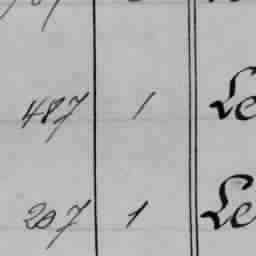 487 1 Le
207 1 Le